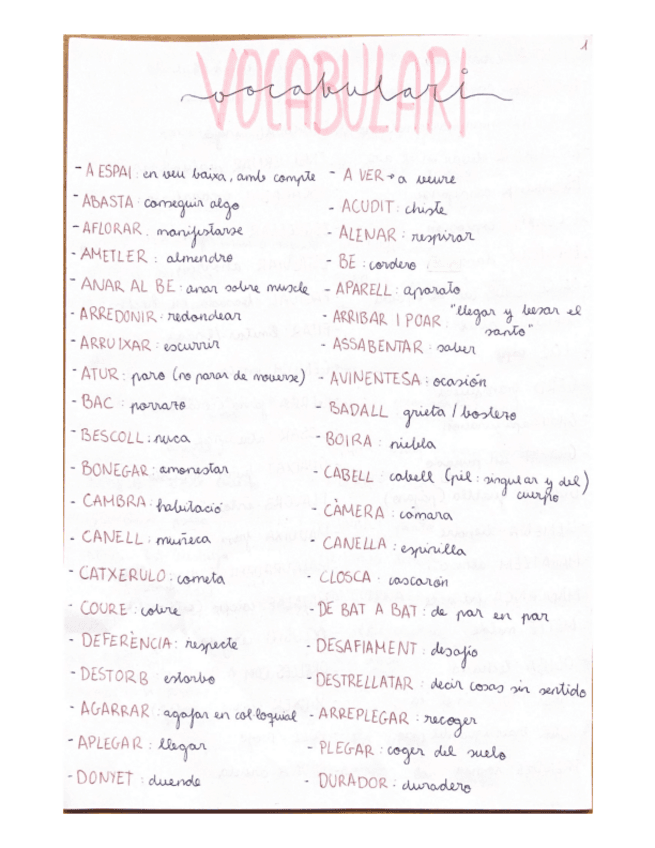 1
VOCABULARI
vocabulari
- A ESPAI: en veu baixa, amb compte
- ABASTA: conseguir algo
- AFLORAR. manifestarse
- AMETLER: almendro
- ANAR AL BE: anar sobre muscle
- ARREDONIR: redondear
- ARRUIXAR: escurrir
- ATUR: paro (no parar de moverse)
- BAC: porrazo
- BESCOLL: nuca
- BONEGAR: amonestar
- CAMBRA: habitació
- CANELL: muñeca
- CATXERULO: cometa
- COURE: cobre
- DEFERÈNCIA: respecte
- DESTORB: estorbo
- AGARRAR: agafar en col·loquial
- APLEGAR: llegar
- DONYET: duende
- A VER → a veure
- ACUDIT: chiste
- ALENAR: respirar
- BE: cordero
- APARELL: aparato
- ARRIBAR I POAR: "llegar y besar el
santo"
- ASSABENTAR: saber
- AVINENTESA: ocasión
- BADALL: grieta / bostezo
- BOIRA: niebla
- CABELL: cabell (pil: singular y del)
cuerpo
- CÀMERA: cámara
- CANELLA: espinilla
- CLOSCA: cascarón
- DE BAT A BAT: de par en par
- DESAFIAMENT: desafío
- DESTRELLATAR: decir cosas sin sentido
- ARREPLEGAR: recoger
- PLEGAR: coger del suelo
- DURADOR: duradero